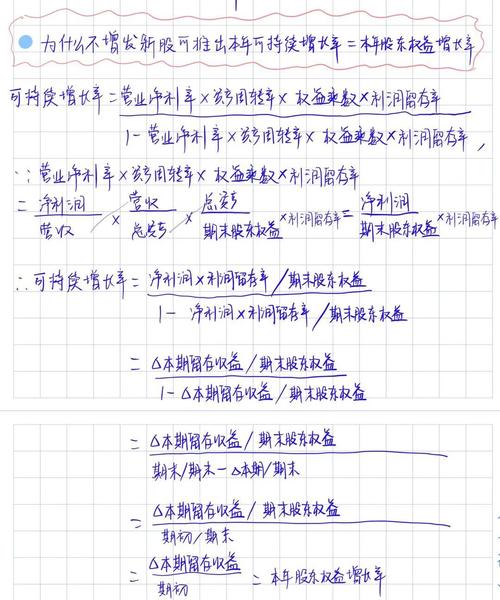 为什么不增发新股可推出本年可持续增长率=本年股东权益增长率
可持续增长率=营业净利率×资产周转率×权益乘数×利润留存率
1-营业净利率×资产周转率×权益乘数×利润留存率,
∵营业净利率×资产周转率×权益乘数×利润留存率
=净利润/营收×营收/总资产×总资产/期末股东权益×利润留存率=净利润/期末股东权益×利润留存率
∴可持续增长率=净利润×利润留存率/期末股东权益
1-净利润×利润留存率/期末股东权益
=△本期留存收益/期末股东权益
1-△本期留存收益/期末股东权益
=△本期留存收益/期末股东权益
期末/期末-△本期/期末
=△本期留存收益/期末股东权益
期初/期末
=△本期留存收益
期初
=本年股东权益增长率